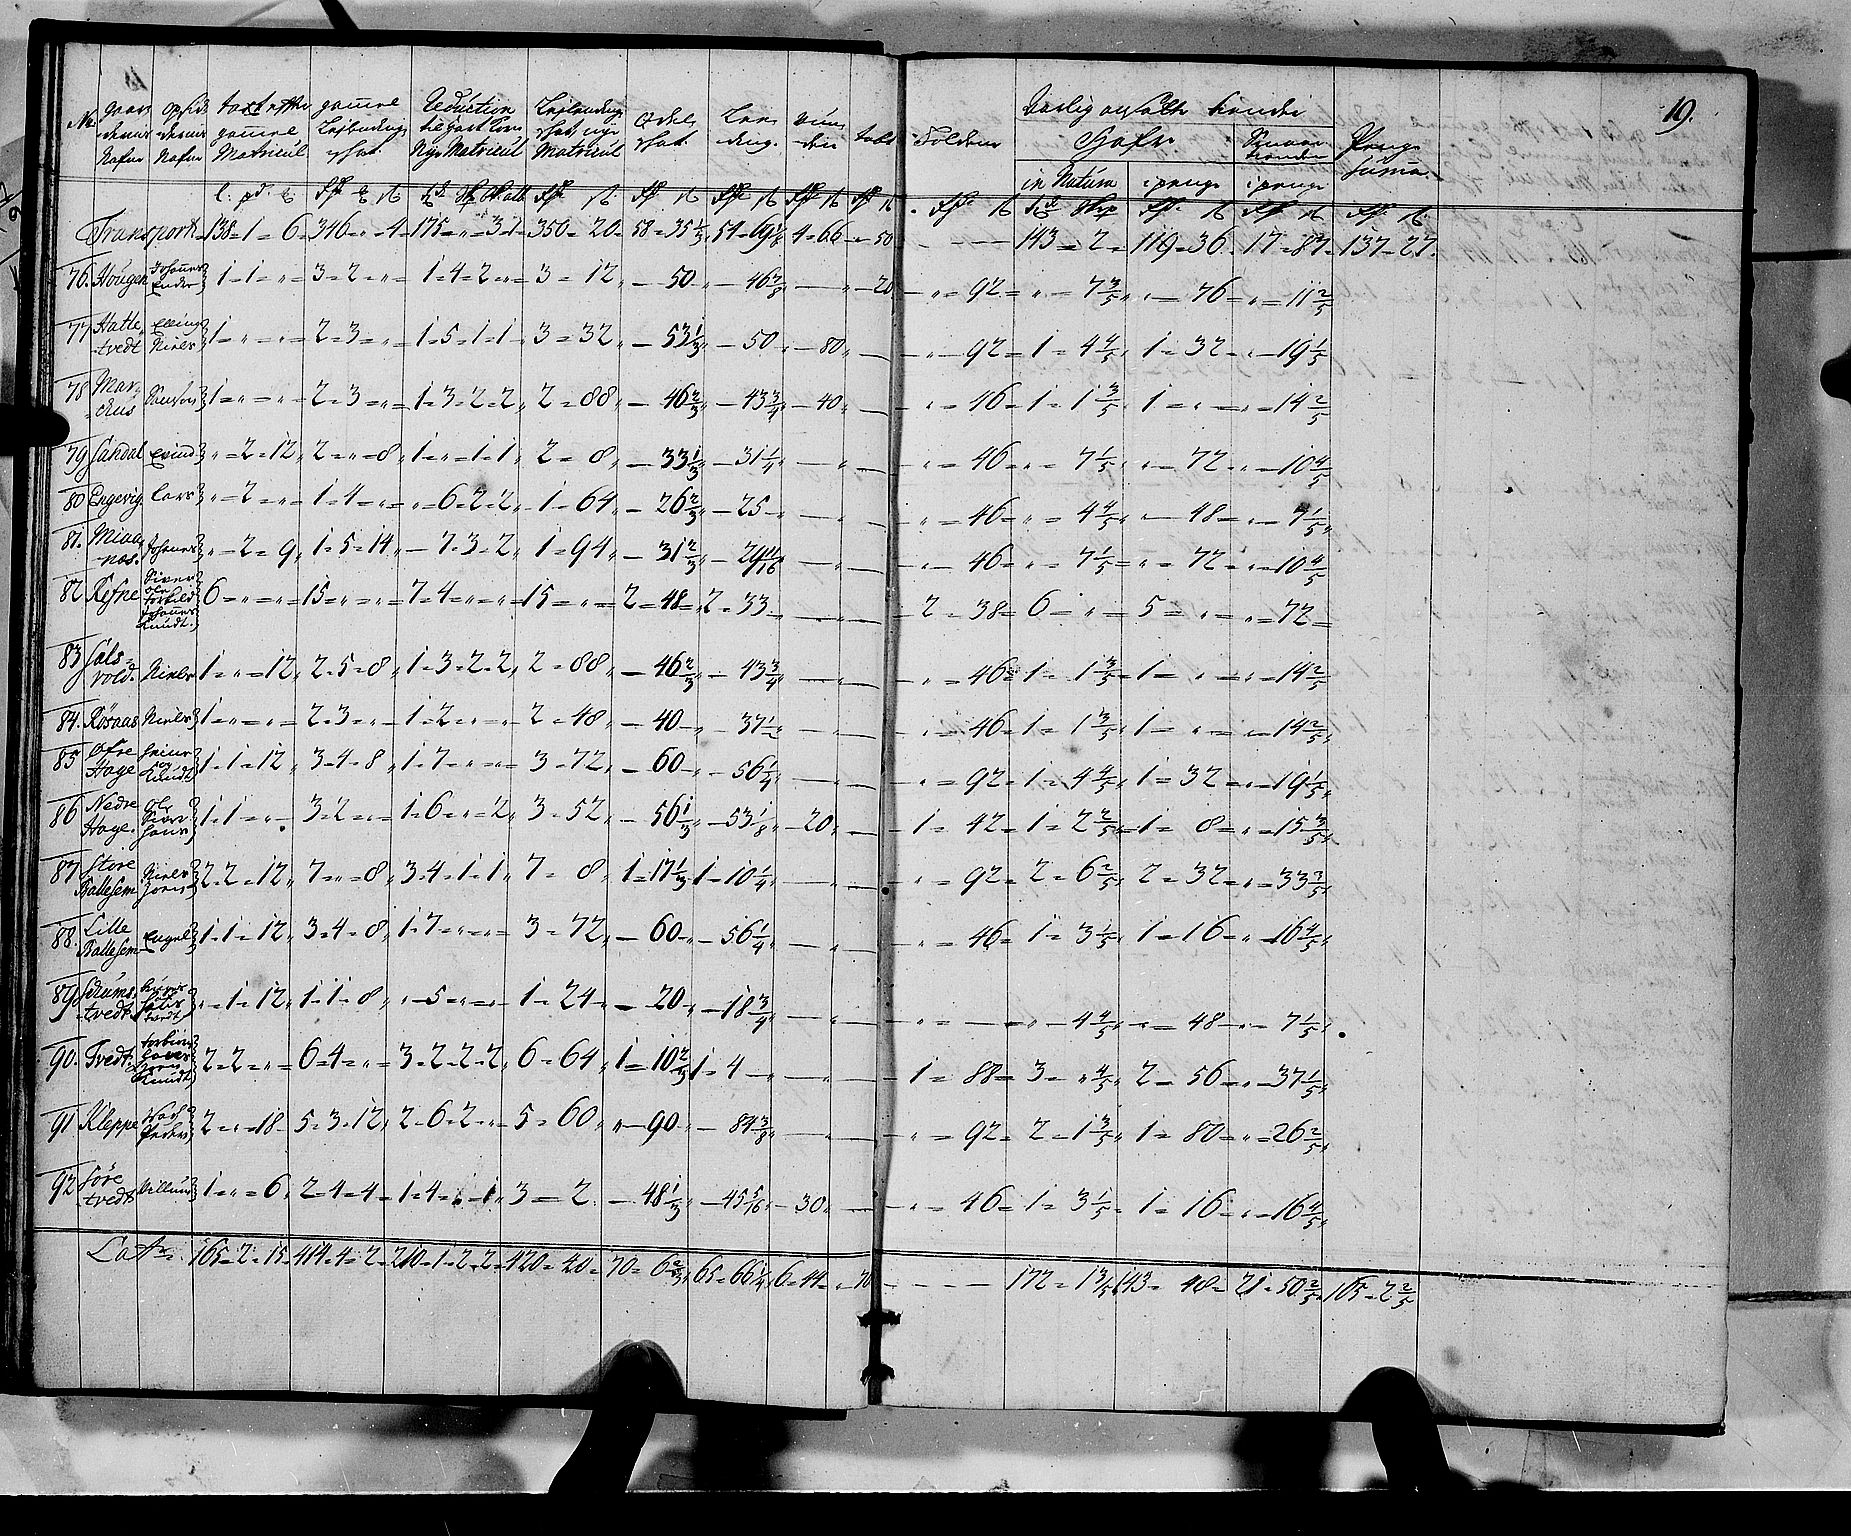 19.
No. Gaar- dernes Nafne taxt efter gamle Matricul gamle Leilendings skat Reduction til Hart Korn Nye Matricul Leilendings skat nye Matricul Odel skat Lee- ding told Folden Aarlig ansatte tiende Hafre in Natura i penge i penge Penge Suma
Transport 138=1=6 346="=4 175="=3=1 350=20 58=35 1/3 54=69 1/8 4=66 "=50 143=2 119=36 17=87 137=27
76. Hougen Johannes Endre 1=1=" 3=2=" 1=4=2=" 3=12 50 46 7/8 " 20 "=92 "=7 3/5 "=76 "=11 2/5
77 Hatle- tvedt Elling Niels 1="=" 2=3=" 1=5=1=1 3=32 53 1/3 50 80 "=92 1=4 4/5 1=32 "=19 1/5
78 Mar- Huus 1="=" 2=3=" 1=3=2=2 2=88 46 2/3 43 3/4 40 "=46 1=1 3/5 1=" "=14 2/5
79 Landal Eivind "=2=12 2="=8 1="=1=1 2=8 33 1/3 31 1/4 " "=46 "=7 1/5 "=72 "=10 4/5
80 Engevig Lars "=2=" 1=4=" "=6=2=2 1=64 26 2/3 25 " "=46 "=4 4/5 "=48 "=7 1/5
81. Miaa- nes. Johannes "=2=9 1=5=14 7=3=2 1=94 31 2/3 29 11/16 " "=46 "=7 1/5 "=72 "=10 4/5
82 Refne Siver Ole Torkild Johannes Knudt. 6="=" 15="=" 7=4="=" 15=" 2=48 2=33 2=38 6=" 5=" "=72
83 Søls- vold. Niels 1="=12 2=5=8 1=3=2=2 2=88 46 2/3 43 3/4 " "=46 1=1 3/5 1=" "=14 2/5
84. Rösaas Niels 1="=" 2=3=" 1=2="=" 2=48 40 37 1/2 " "=46 1=1 3/5 1=" "=14 2/5
85 Øfre Hage og Knudt 1=1=12 3=4=8 1=7="=" 3=72 60 56 1/4 " "=92 1=4 4/5 1=32 "=19 1/5
86 Nedre Hage. Ole 1=1=" 3=2=" 1=6="=2 3=52 56 1/3 53 1/8 20 1=42 1=2 2/5 1=8 "=15 3/5
87 Store Ballesem Niels 2=2=12 7="=8 3=4=1=1 7=8 1=17 1/3 1=10 1/4 " "=92 2=6 2/5 2=32 "=33 3/5
88. Lille Ballesem Engel 1=1=12 3=4=8 1=7="=" 3=72 60 56 1/4 " "=46 1=3 1/5 1=16 "=16 4/5
89 tvedt "=1=12 1=1=8 "=5="=" 1=24 20 18 3/4 " "= "=4 4/5 "=48 "=7 1/5
90. Tvedt. Torbiörn Knudt 2=2=" 6=4=" 3=2=2=2 6=64 1=10 2/3 1=4 " 1=88 3=" 4/5 2=56 "=37 1/5
91 Kleppe Peder 2="=18 5=3=12 2=6=2=" 5=60 "=90 84 3/8 " "=92 2=1 3/5 1=80 "=26 2/5
92 Söre tvedt Villum 1="=6 2=4=4 1=4="=1 3=2 48 1/3 45 5/16 30 "=46 1=3 1/5 1=16 "=16 4/5
Lat: 165=2=15 414=4=2 210=1=2=2 420=40 70=6 2/3 65=66 1/4 6=44 "=70 172=1 3/5 143=48 21=50 2/5 165=2 2/5